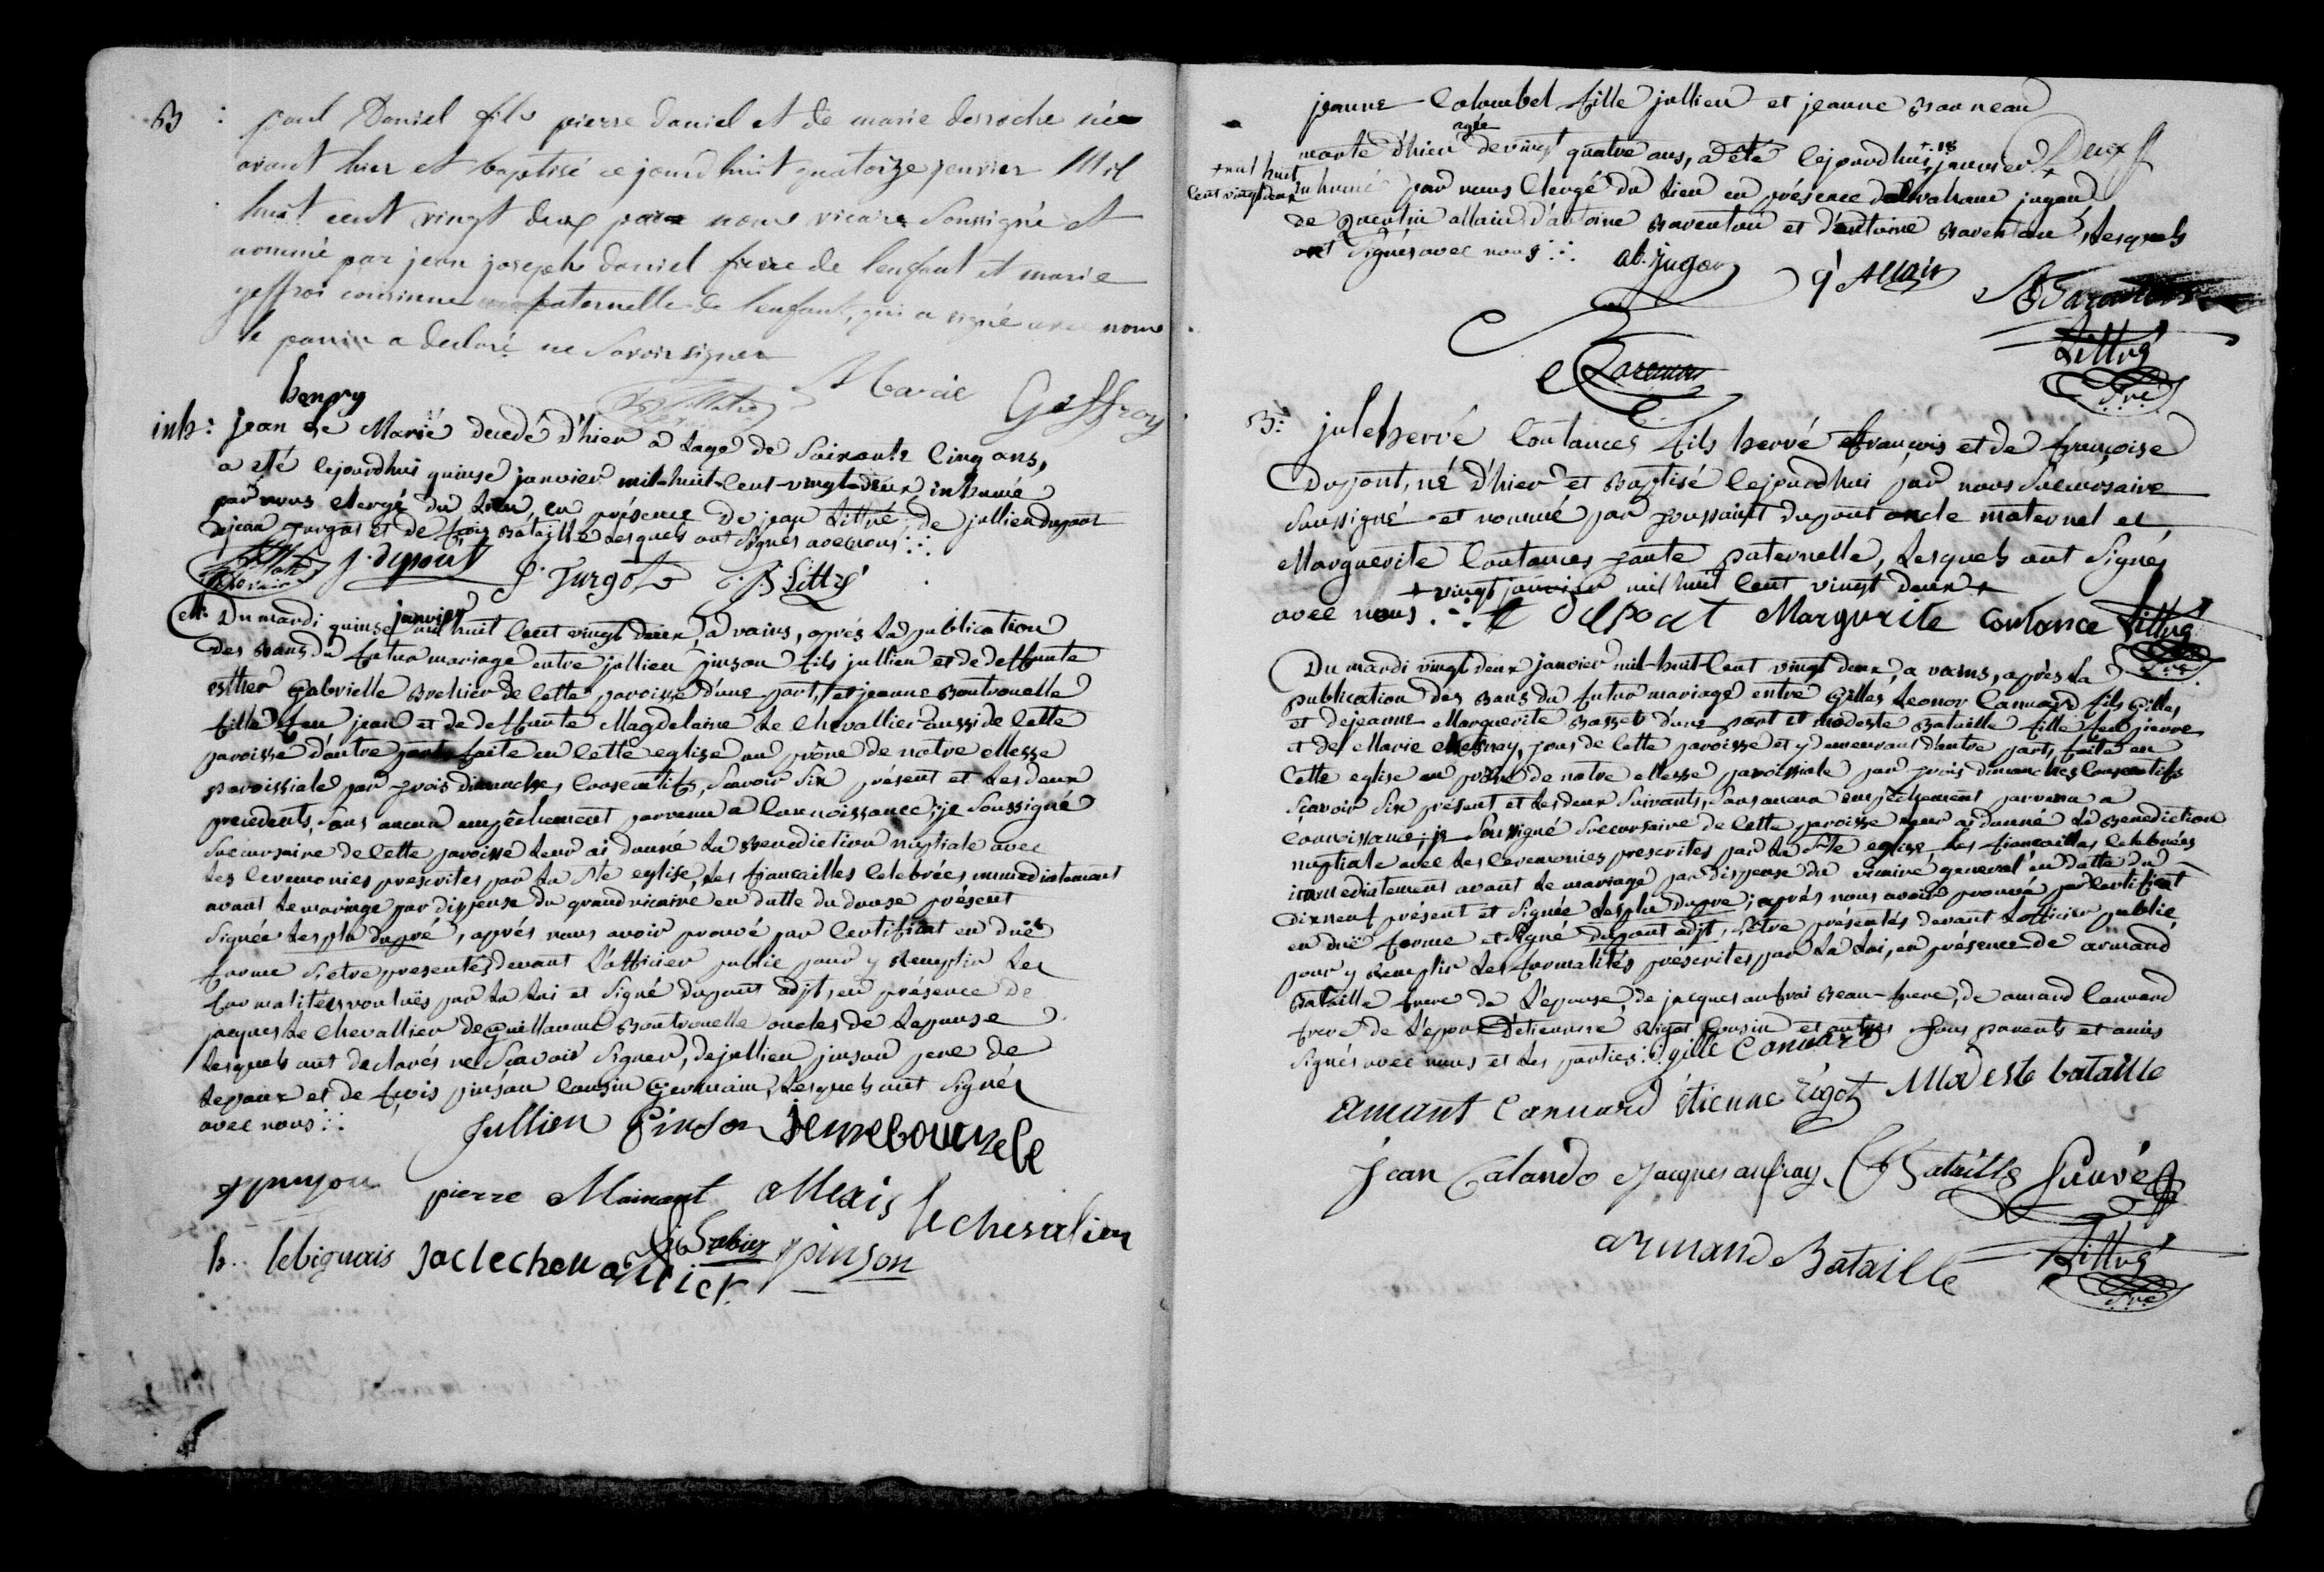 B : paul Daniel fils pierre daniel et de marie desroche né
avant hier et baptisé ce jourd'huit quatorze janvier Mil
huit cent vingt deux par nous vicaire Soussigné et
nommé par jean joseph daniel frere de l'enfant et marie
geffroi cousinne paternelle de l'enfant, qui a signé avec nous
le parrin a declaré ne Savoir signer
Marie Geffroy
henry
inh: jean Le Marié decedé d'hier a L'age de Soixante Cinq ans,
a eté Cejourdhui quinse janvier mil-huit-Cent-vingt-deux inhumé
par nous clergé du Lieu, en présence De jean Littré, de jullien dupont
de jean Turgot et de fçois Bataille Lesquels ont Signés avec nous
j. dupont J. Turgot J.B. Littré
M. Du mardi quinse janvier mil huit Cent vingt deux, a vains, aprés La publication
Des Bans du futur mariage entre jullien pinson fils jullien et de deffunte
esther Gabrielle Brehier de Cette paroisse d'une part, et jeanne Boutrouelle
fille feu jean et de deffunte Magdelaine Le Chevallier aussi de Cette
paroisse d'autre part faite en Cette eglise au prône de notre Messe
paroissiale par trois dimanches Consecutifs, Scavoir Six présent et Les deux
precedents, Sans aucun empêchement parvenu a Connoissance; je Soussigné
Succursaire de Cette paroisse Leur ai donné La Benediction nuptiale avec
Les Ceremonies prescrites par La Ste eglise, Les fiancailles Celebrées immediatement
avant Le mariage par dispense du grand vicaire en datte du douse présent
Signée Lesplu dupré, aprés nous avoir prouvé par Certificat en duë
forme S'etre presentés devant L'officier public pour y Remplir Les
formalités vouluës par La Loi et Signé dupont adjt, en présence de
jacques Le Chevallier de Guillaume Boutrouelle oncles de L'epouse
Lesquels ont declarés ne Scavoir Signer, de jullien pinson pere de
L'epoux et de fçois pinson Cousin Germain, Lesquels ont Signés
avec nous
Jullien Pinson
pierre Mainant Alexis Lechevalier
h. lebignais pinson
jeanne Colombel fille jullien et jeanne
morte d'hier agée de vingt quatre ans, a été Cejourdhui +18 janvier
+ mil huit Cent vingt deux inhumé par nous Clergé du Lieu en présence d'abraham jugan
de Quentin allain d'antoine Baventon et d'antoine Baventon, Lesquels
ont Signés avec nous
ab. jugan q Allain
Littré
Sre
B: jule hervé Coutances fils hervé François et de françoise
Dupont, né d'hier et Baptisé Cejourdhui par nous Succursaire
Soussigné et nommé par toussaint dupont oncle maternel et
Marguerite Coutances tante paternelle, Lesquels ont Signés
+ vingt janvier mil huit Cent vingt deux +
avec nous Marguerite Coutance Littré
Sre
Du mardi vingt deux janvier mil-huit-Cent vingt deux, a vains, aprés La
publication des Bans du futur mariage entre Gilles Leonor Canuard fils Gilles
et de jeanne Marguerite Basset d'une part et modeste Bataille fille feu pierre
et de Marie, tous de Cette paroisse et y demeurant d'autre part, faite en
Cette eglise au prône de notre Messe paroissiale par trois dimanches Consecutifs
Scavoir Six présent et Les deux Suivants, Sans aucun empêchement parvenu a
Connoissance; je Soussigné Succursaire de Cette paroisse Leur ai donné La Benediction
nuptiale avec Les Ceremonies prescrites par La Ste eglise, Les fiancailles Celebrées
immediatement avant Le mariage par dispense du vicaire general en datte du
Dix neuf présent et Signée Lesplu dupré; aprés nous avoir prouvé par Certificat
en duë forme et Signé dupont adjt, S'etre présentés devant L'officier public
pour y Remplir Les formalités préscrites par La Loi, en présence de armand
Bataille frere de L'epouse, de jacques aufrai Beau-frere, de amand Canuard
frere de L'epoux D'etienne Rigot Cousin et autres Sous parents et amis
Signés avec nous et Les parties. gille Canuard
amant Canuard étienne rigot Modeste bataille
jean Calando Jacques aufray Bataille
armand Bataille Littré
Sre